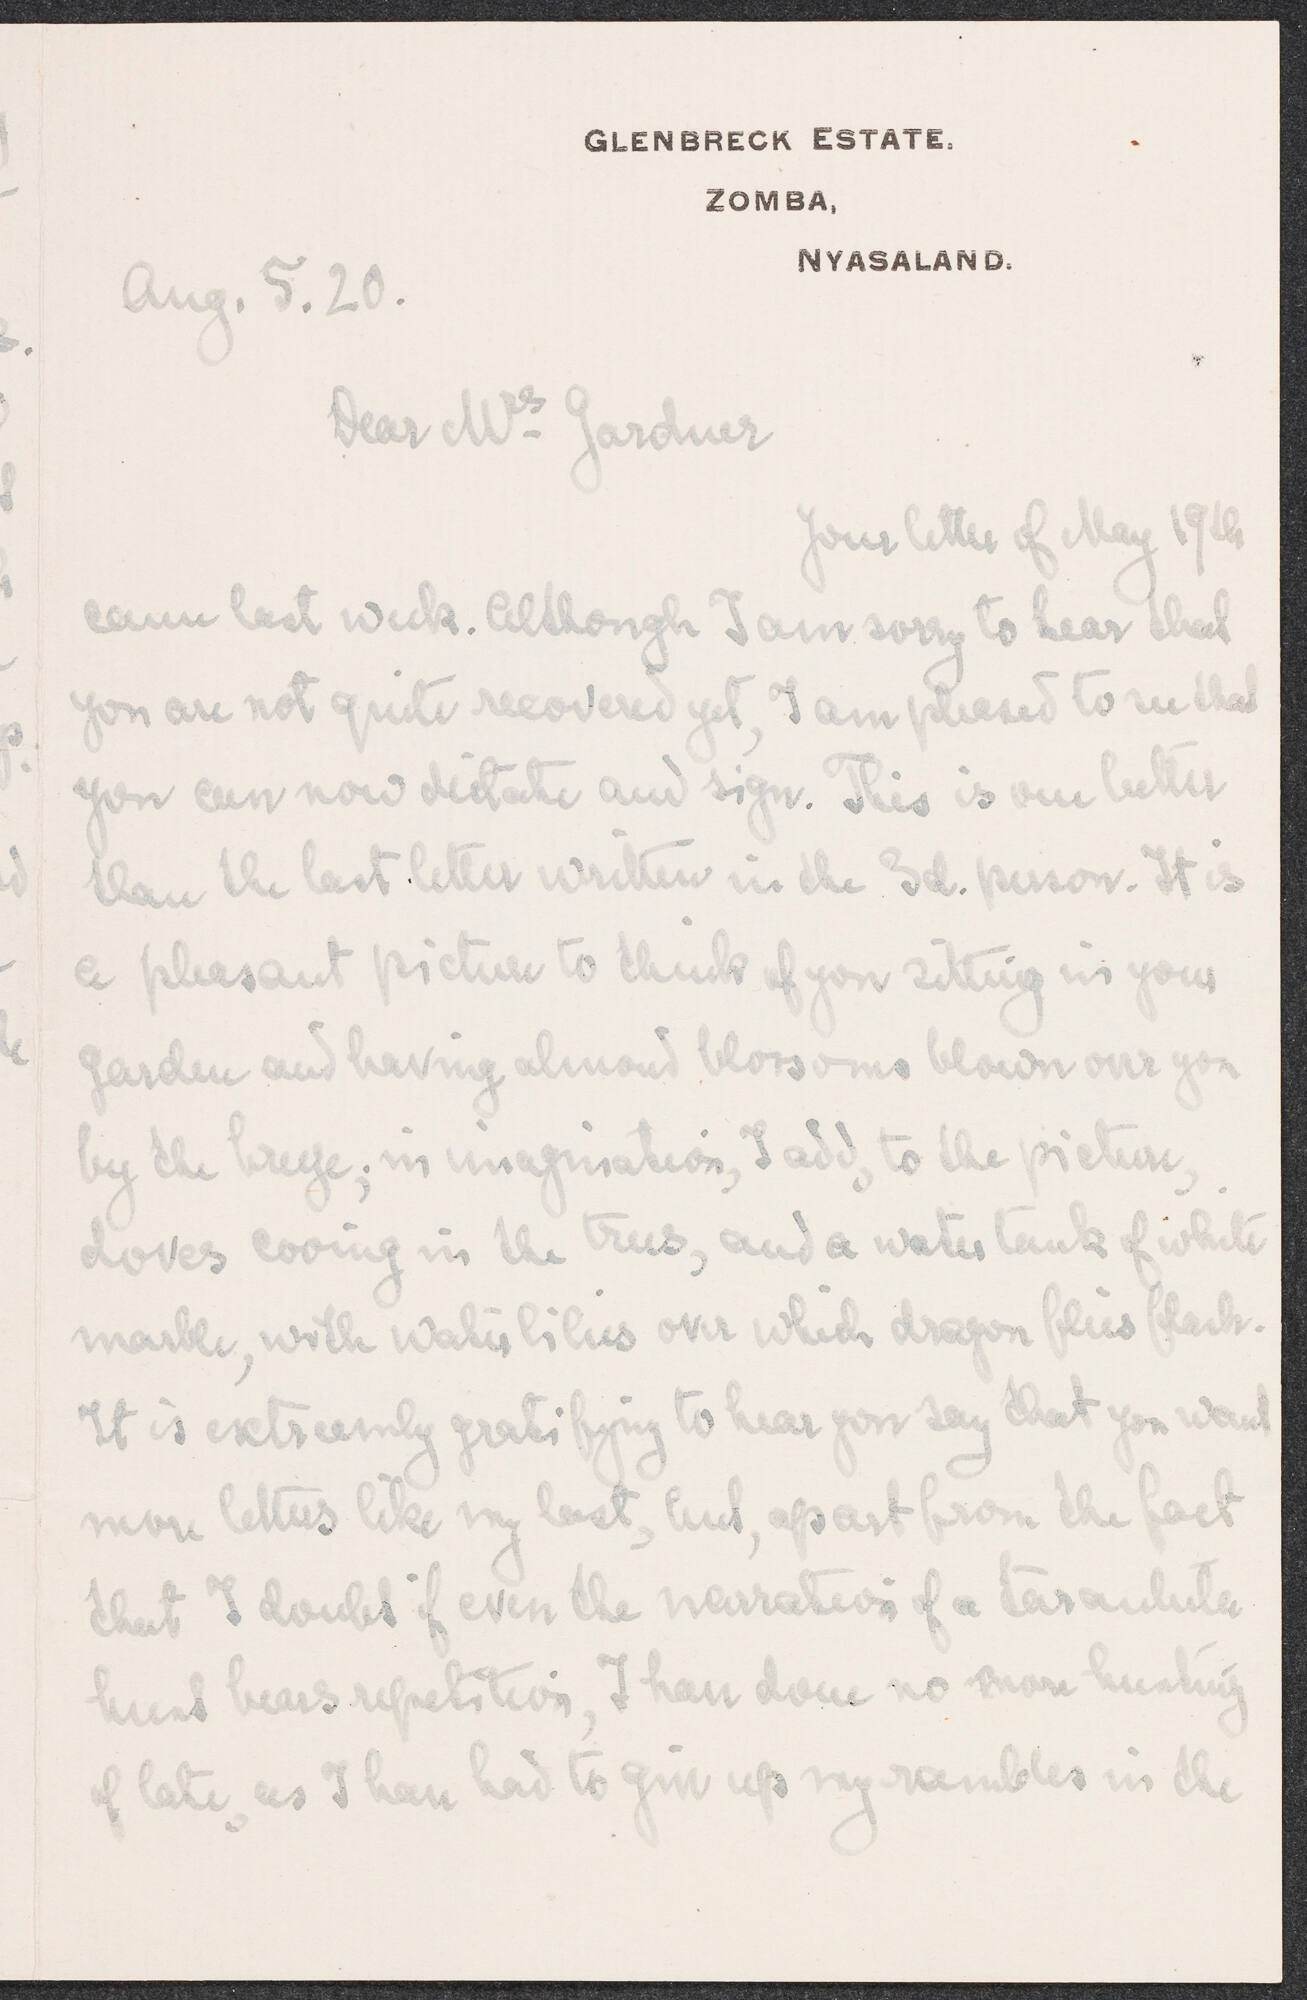 GLENBRECK ESTATE.
ZOMBA,
NYASALAND.
Aug. 5. 20.
Dear Mrs Gardner
Your letter of May 19th
came last week. Although I am sorry to hear that
you are not quite recovered yet, I am pleased to see that
you can now dictate and sign. This is one better
than the last letter written in the 3d. person. It is
a pleasant picture to think of you sitting in your
garden and having almond blossoms blown over you
by the breeze; in imagination, I add, to the picture,
doves cooing in the trees, and a water tank of white
marble, with water lilies over which dragon flies flash.
It is extreemly gratifying to hear you say that you want
more letters like my last, but, apart from the fact
that I doubt if even the narration of a tarantula
hunt bears repetition, I have done no more hunting
of late, as I have had to give up my rambles in the